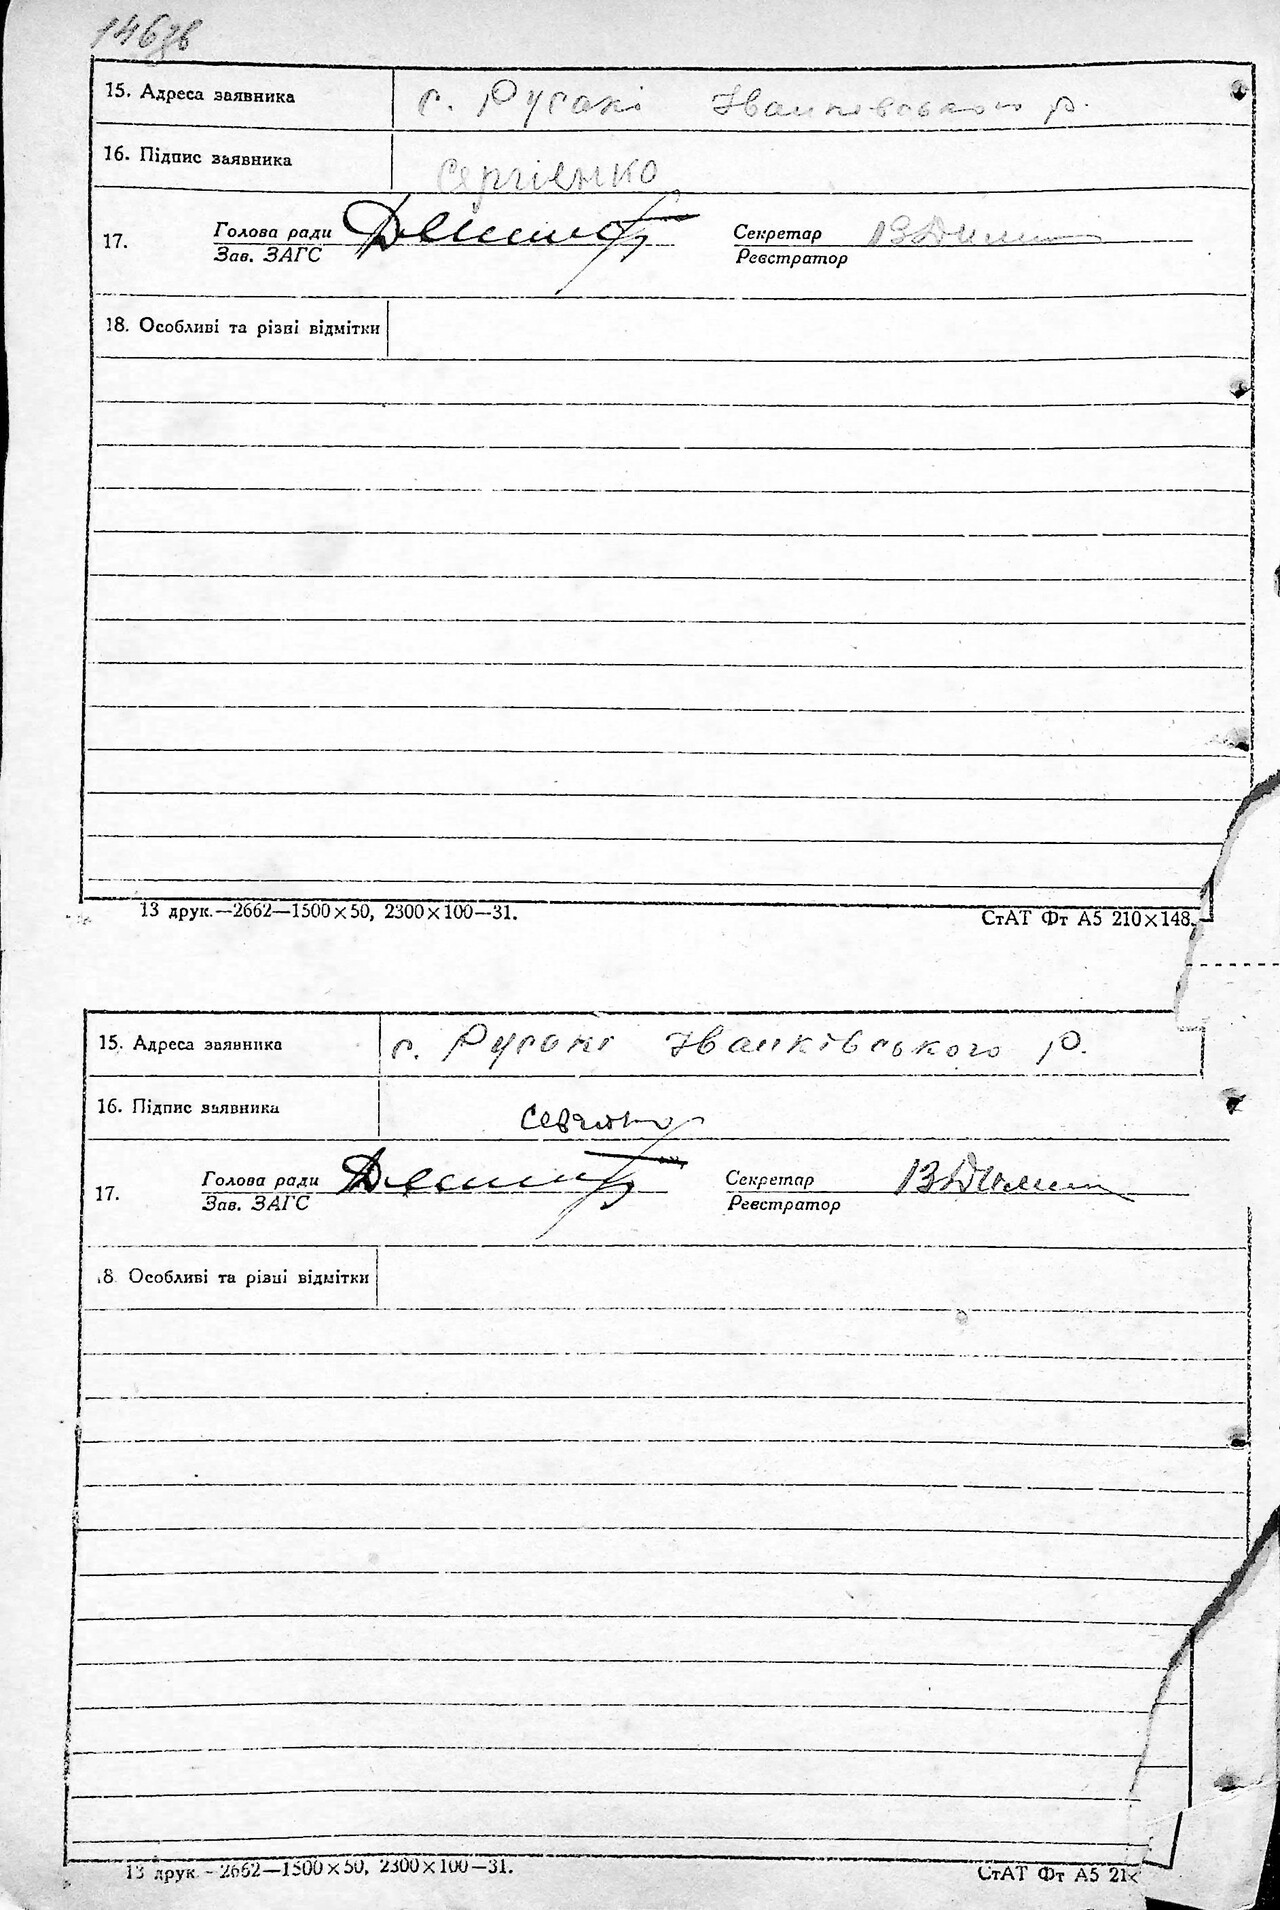 146зв
15. Адреса заявника с. Русакі Іванківського р.
16. Підпис заявника Сергієнко
Голова ради Секретар
17.
Зав. ЗАГС Реєстратор
18. Особливі та різні відмітки
13 друк.—2662—1500×50, 2300×100—31. СтАТ Фт А5 210×148.
15. Адреса заявника с. Русакі Іванківського р.
16. Підпис заявника
Голова ради Секретар
17.
Зав. ЗАГС Реєстратор
8. Особливі та різні відмітки
13 друк. - 2662—1500×50, 2300×100—31. СтАТ Фт А5 21